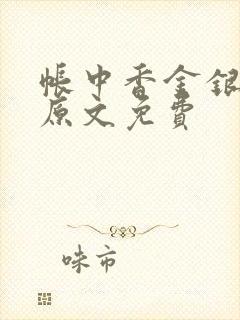 帐中香金银
原文免费
味市